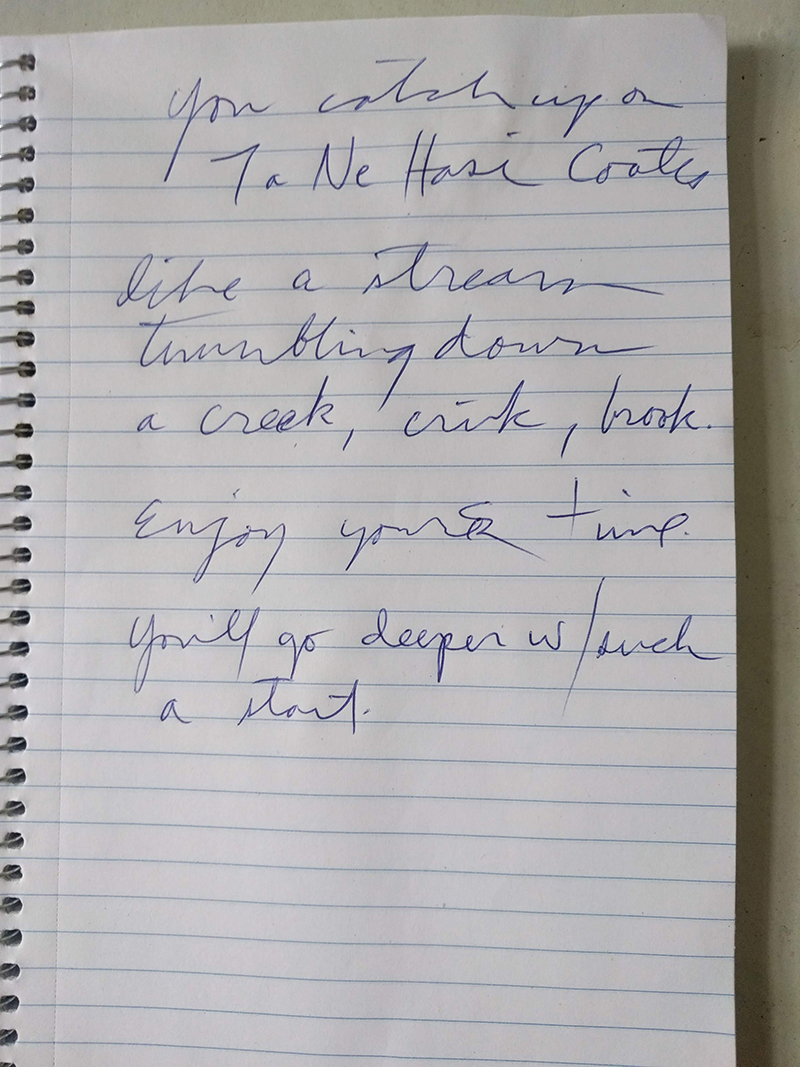 you catch up on
Ta Ne Hasi Coates
like a stream
tumbling down
a creek, crik, brook.
Enjoy your time.
You'll go deeper w/such
a start.